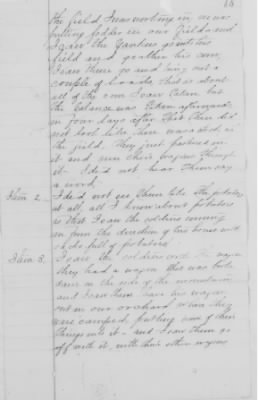 18
the field, I was working in, I was
pulling fodder in our field and
I saw the Yankees go into his
field and gather his corn,
I saw them go and bring out a
couple of loads, this is about
all of the corn I saw taken but
the balance was taken afterwards
in four days after this there did
not look like there was a stock in
the field. They just fastened on
it and run their wagons through
it - I did not hear them say
a word,
Item 2. I did not see them take the potatoes
at all, all I know about potatoes
is that I saw the soldiers coming
in from the direction of his house with
sacks full of potatoes.
Item 3. I saw the soldiers with the wagon
they had a wagon that was
down on the side of the mountain
and I saw them have his wagon
out in our orchard where they
were camped, putting some of their
things into it - and I saw them go
off with it, with their other wagons